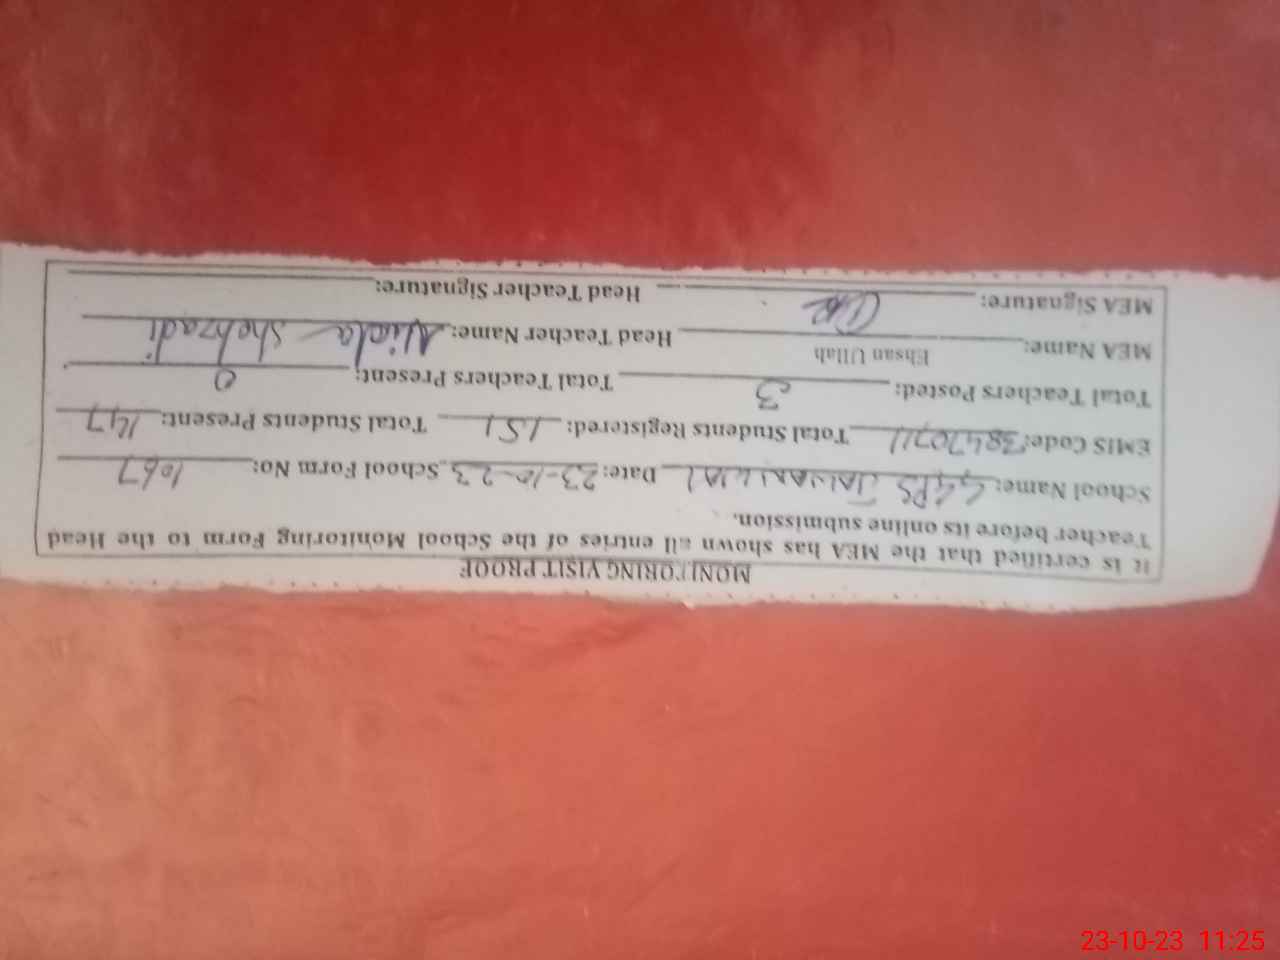 MONITORING VISIT PROOF
It is certified that the MEA has shown all entries of the School Monitoring Form to the Head
Teacher before its online submission.
School Name: GGPS Date: 23-10-23 School Form No: 1067
EMIS Code: Total Students Registered: 151 Total Students Present: 147
Total Teachers Posted: 3 Total Teachers Present: 0
MEA Name: Ehsan Ullah Head Teacher Name: Shehzadi
MEA Signature: Head Teacher Signature:
23-10-23 11:25